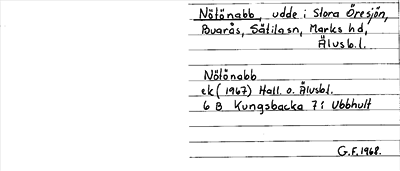 Nötönabb, udde i Stora Öresjön,
Buarås, Sätila sn, Marks hd,
Älvsb.l.
Nötönabb
ek (1967) Hall. o. Älvsbl.
6 B Kungsbacka 7i Ubbhult
G.F. 1968.